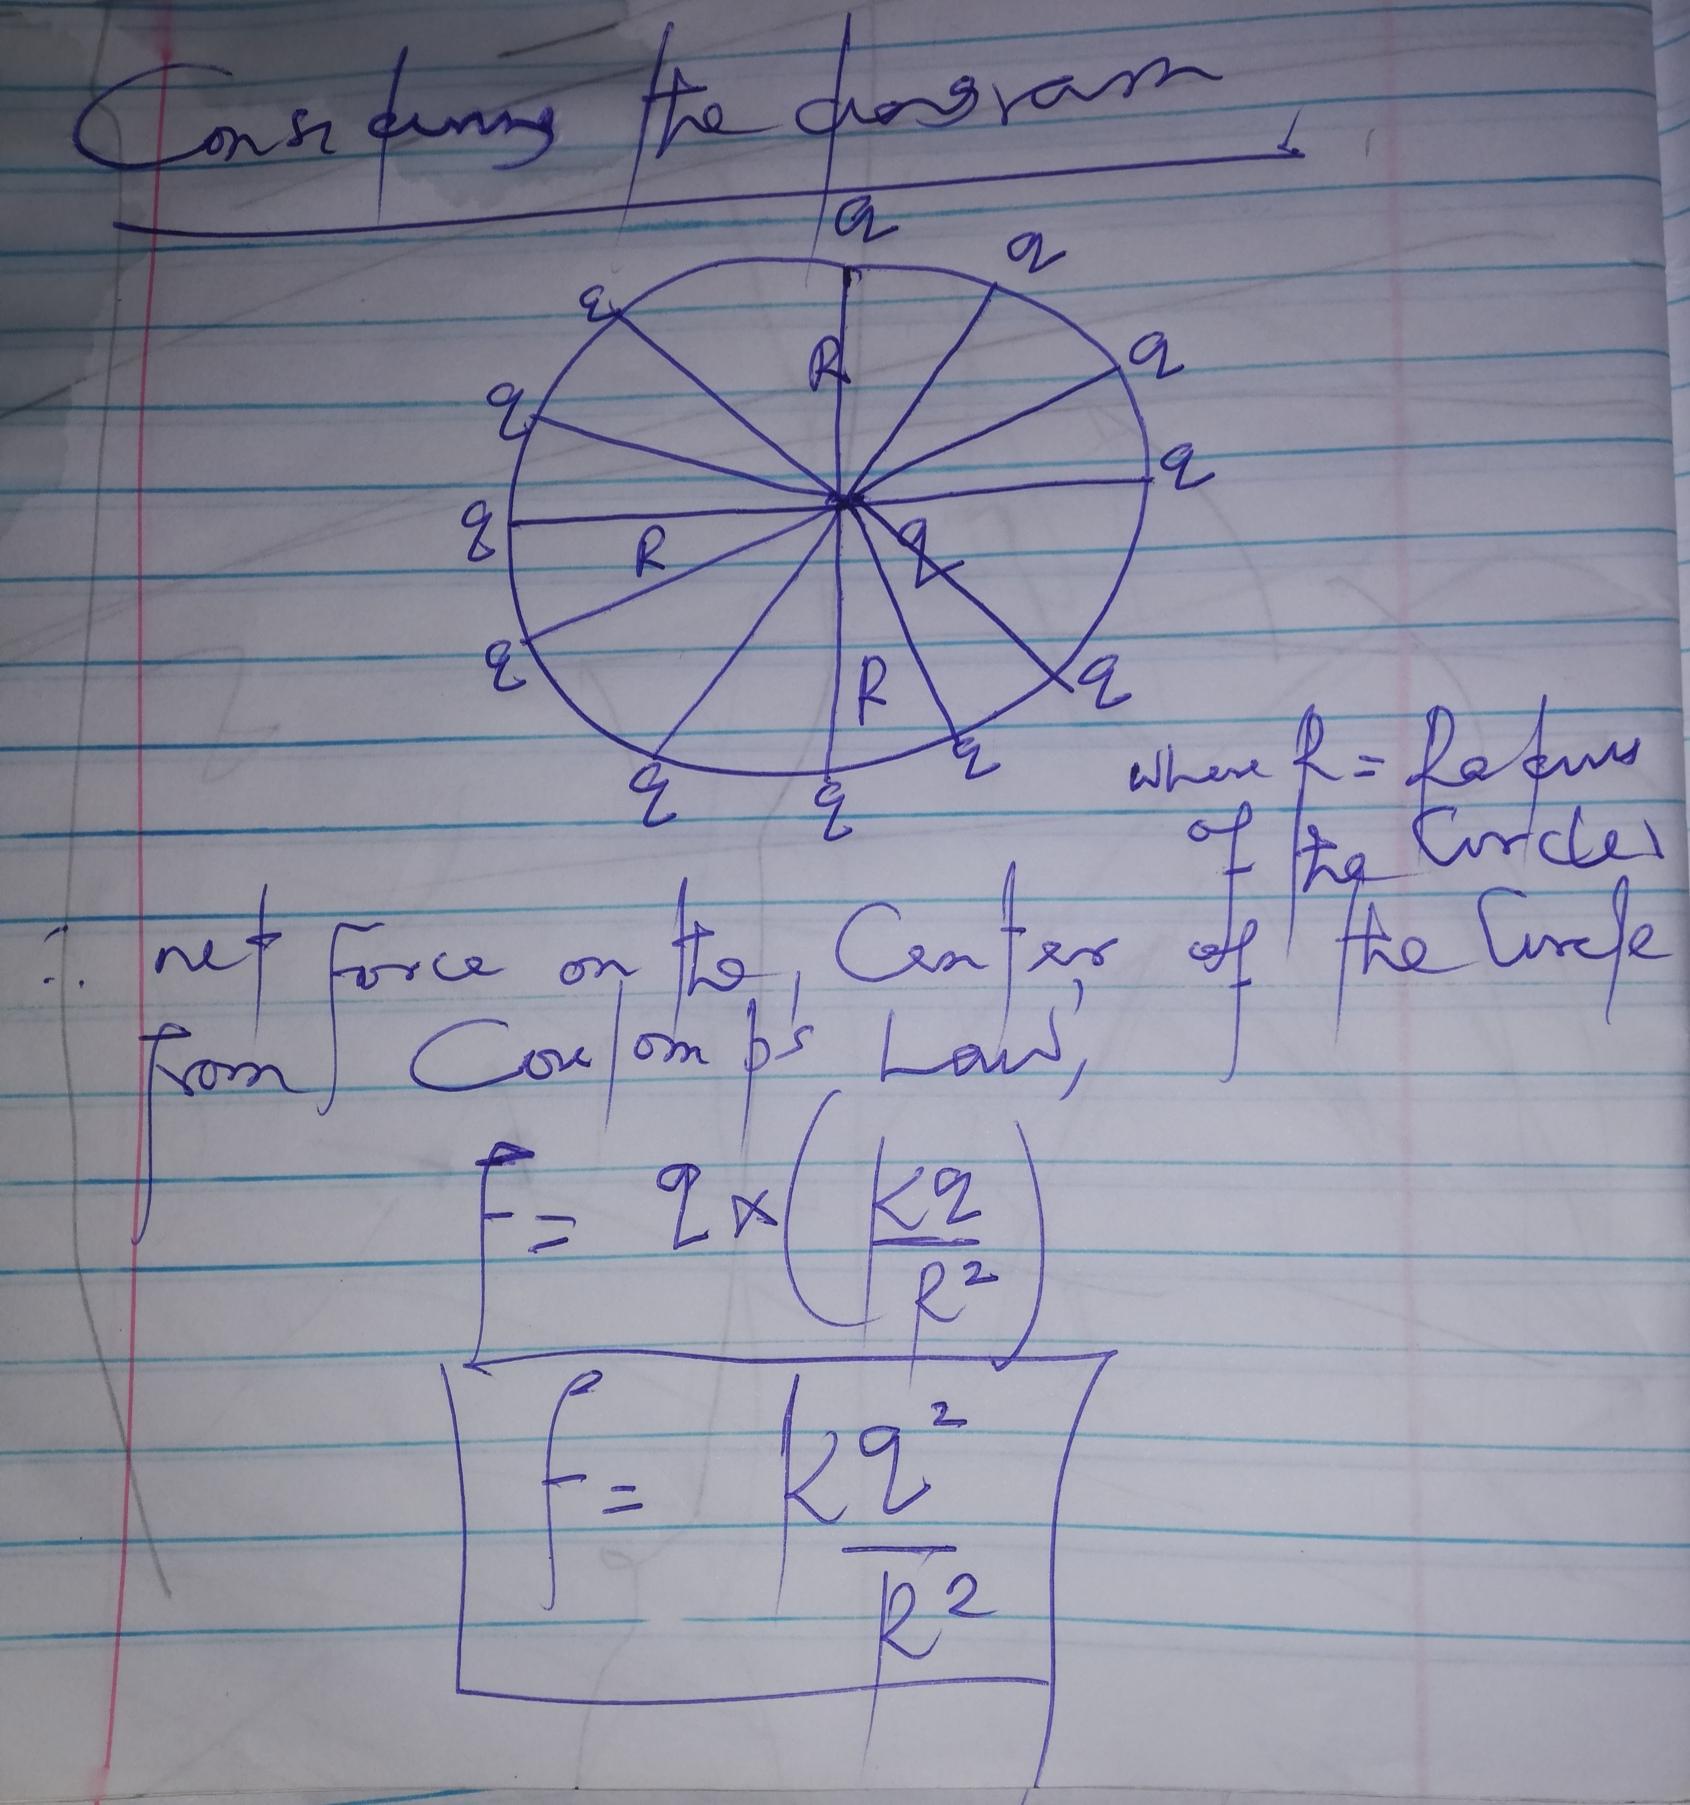 Considering the diagram
q
q
q
q
R
q
q
q
R
q
q
R
q
q
q
q
q
where R = Radius
of the Circle
∴ net Force on the, Center of the Circle
from Coulomb's Law,
F = q × (Kq/R²)
F = Kq²/R²